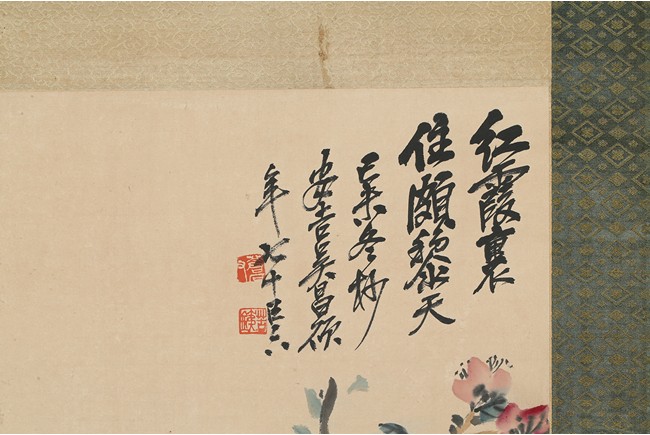 紅霞裏
住頗黎天
己未冬杪
安吉吳昌碩
年七十六